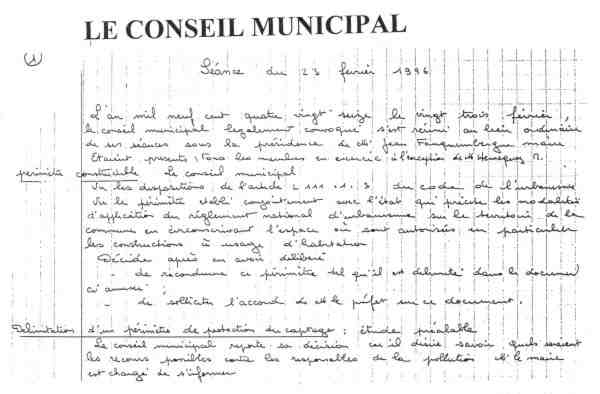 LE CONSEIL MUNICIPAL
(1)
Séance du 23 février 1996
L'an mil neuf cent quatre vingt seize le vingt trois février,
le conseil municipal légalement convoqué s'est réuni au lieu ordinaire
de ses séances sous la présidence de Mr Jean Fauquembergue maire
Etaient présents : Tous les membres en exercice à l'exception de M Hennequez
périmètre constructible Le conseil municipal
Vu les dispositions de l'article L 111.1.3 du code de l'urbanisme
Vu le périmètre établi conjointement avec l'état qui précise les modalités
d'application du règlement national d'urbanisme sur le territoire de la
commune en circonscrivant l'espace où sont autorisées en particulier
les constructions à usage d'habitation
Décide après en avoir délibéré
- de reconduire ce périmètre tel qu'il est délimité dans le document
ci annexé ;
- de solliciter l'accord de M le préfet sur ce document.
Délimitation d'un périmètre de protection du captage : étude préalable
Le conseil municipal reporte sa décision car il désire savoir quels seraient
les recours possibles contre les responsables de la pollution Mr le maire
est chargé de s'informer